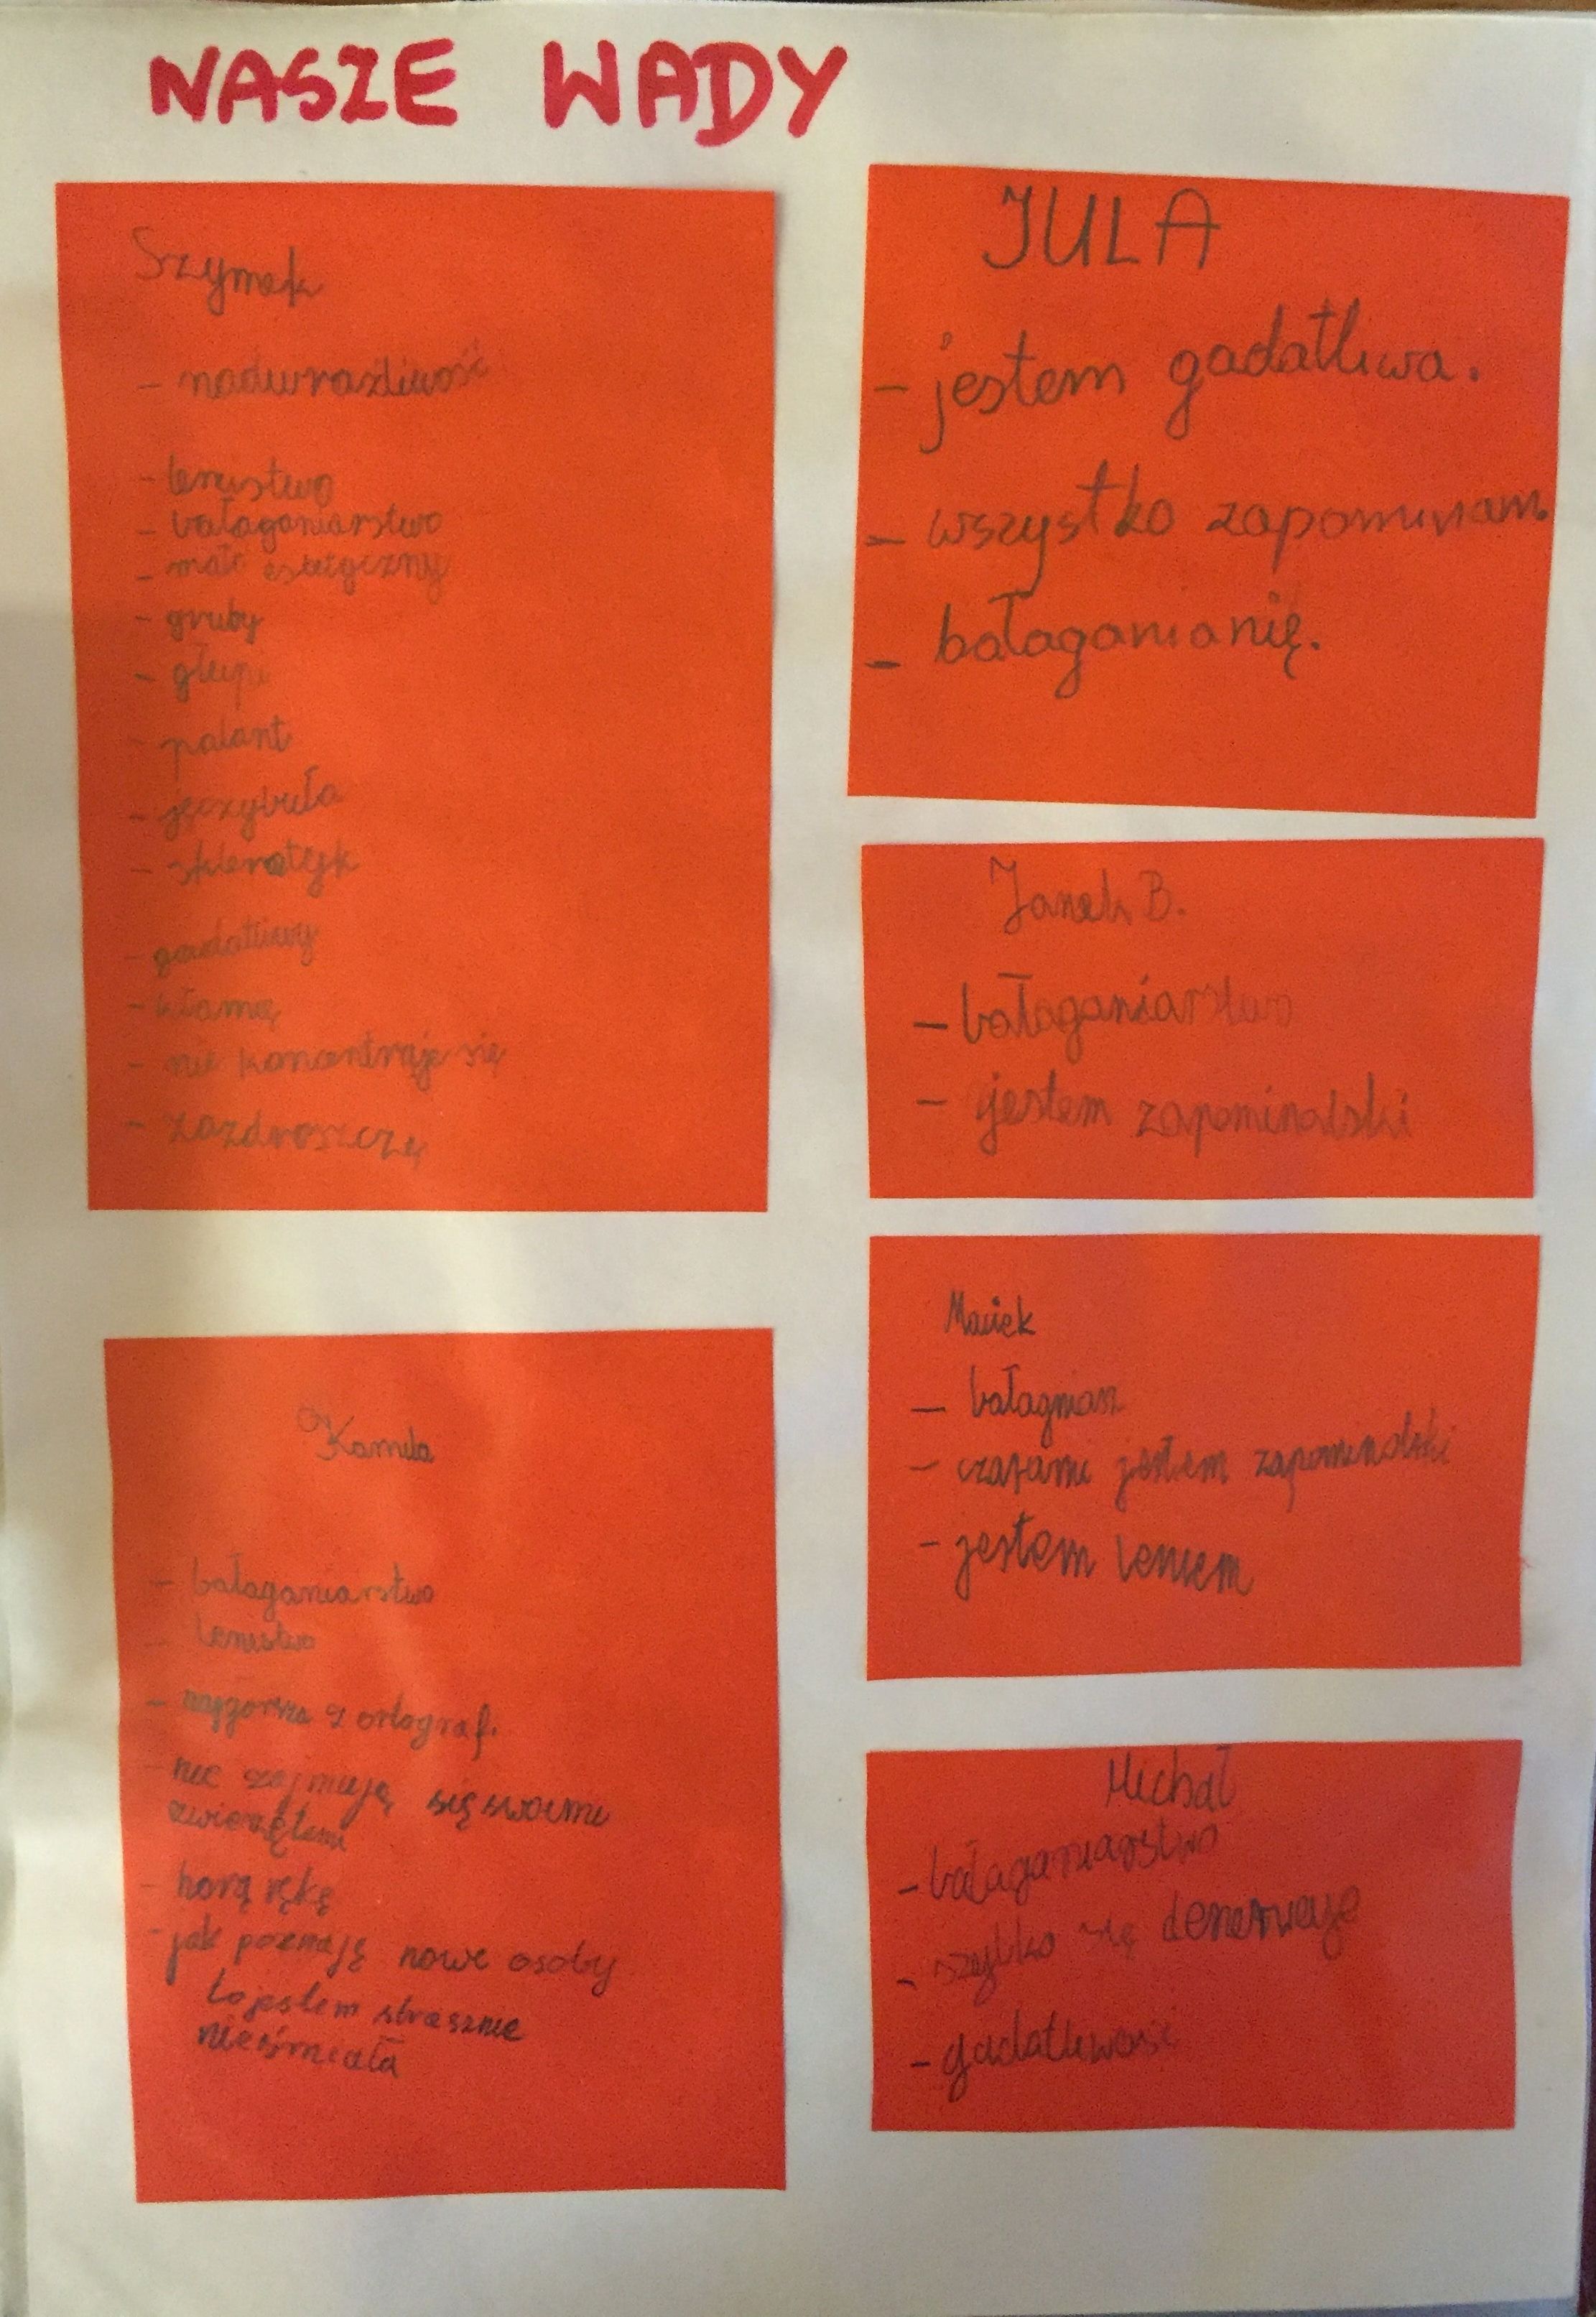 NASZE WADY
Szymek
- nadwrażliwość
- lenistwo
- bałaganiarstwo
- mało estetyczny
- gruby
- głupi
- palant
- jęczybuła
- sklerotyk
- gadatliwy
- kłamię
- nie koncentruje się
- zazdroszczę
Kamila
- bałaganiarstwo
- lenistwo
- najgorsza z ortograf.
- nie zajmują się swoimi
zwierzętami
- horą rękę
- jak poznają nowe osoby
to jestem strasznie
nieśmiała
JULA
- jestem gadatliwa.
- wszystko zapominam.
- bałaganianię.
Janek B.
- bałaganiarstwo
- jestem zapominalski
Maciek
- bałagniarz
- czasami jestem zapominalski
- jestem leniem
Michał
- bałaganiarstwo
- szybko się denerwuje
- gadatliwość